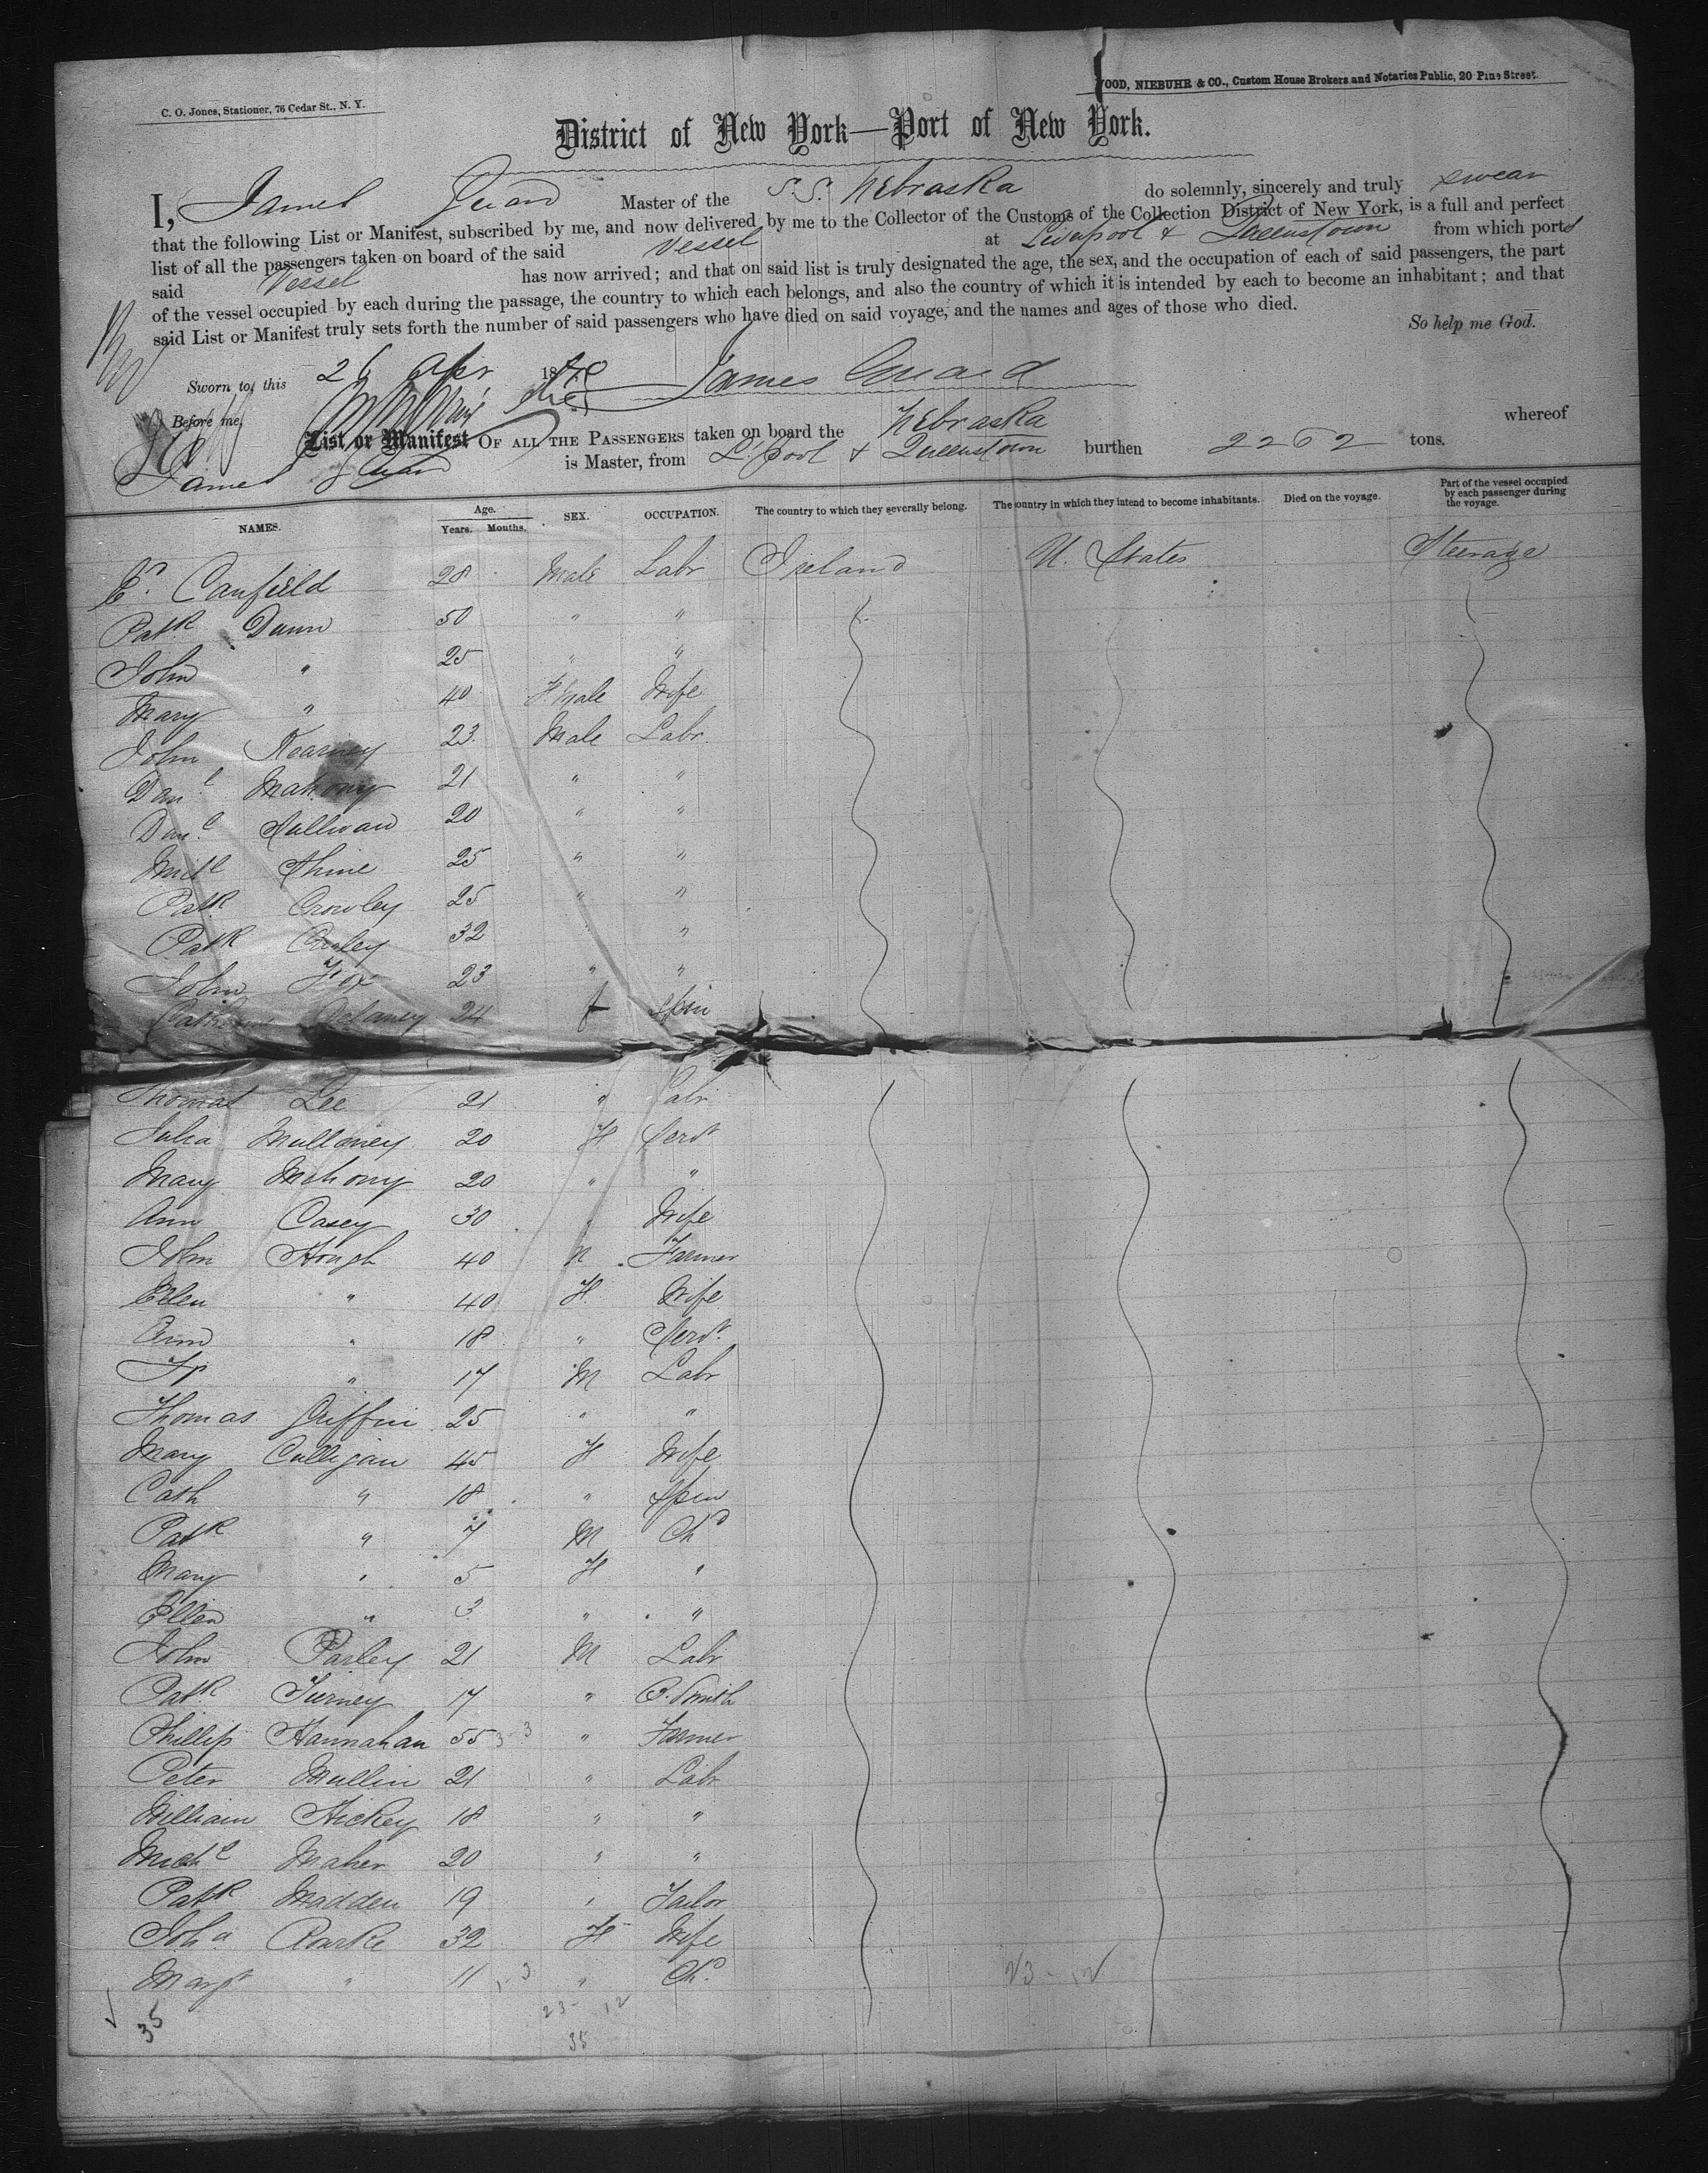 C. O. Jones, Stationer, 76 Cedar St., N. Y.
OOD, NIEBUHR & CO., Custom House Brokers and Notaries Public, 20 Pine Street.
District of New York—Port of New York.
I, James Guard Master of the S.S. Nebraska do solemnly, sincerely and truly swear
that the following List or Manifest, subscribed by me, and now delivered by me to the Collector of the Customs of the Collection District of New York, is a full and perfect
list of all the passengers taken on board of the said Vessel at Liverpool & Queenstown from which ports
said Vessel has now arrived; and that on said list is truly designated the age, the sex, and the occupation of each of said passengers, the part
of the vessel occupied by each during the passage, the country to which each belongs, and also the country of which it is intended by each to become an inhabitant; and that
said List or Manifest truly sets forth the number of said passengers who have died on said voyage, and the names and ages of those who died.
So help me God.
Sworn to, this 26 Apr 1870 James Guard
Before me,
List or Manifest OF ALL THE PASSENGERS taken on board the Nebraska whereof
James Guard is Master, from L'pool & Queenstown burthen 2262 tons.
NAMES. Age. Years. Months. SEX. OCCUPATION. The country to which they severally belong. The country in which they intend to become inhabitants. Died on the voyage. Part of the vessel occupied by each passenger during the voyage.
Canfield 28 Male Labr Ireland U. States Steerage
Patk Dunn 50 " "
John " 25 " "
Mary " 40 F.Male Wife
John Kearney 23 Male Labr
Danl Mahony 21 " "
Danl Sullivan 20 " "
Michl Shine 25 " "
Patk Crowley 25 " "
Patk Curley 32 "
John Fox 23 " "
Delaney 24 f Spin
Thomas Lee 21 " Labr
Julia Mullaney 20 F Servt
Mary Mahony 20 " "
Ann Casey 30 " Wife
John Hough 40 M Farmer
Ellen " 40 F Wife
Ann " 18 " Servt
" 17 M Labr
Thomas Griffin 25 " "
Mary Culligan 45 F Wife
Cath " 18 " Spin
Patk " 7 M Chd
Mary " 5 F "
Ellen " 3 " "
John Parley 21 M Labr
Patk Tierney 17 " B. Smith
Phillip Hannahan 55 " Farmer
Peter Mullin 21 " Labr
William Hickey 18 " "
Michl Maher 20 " "
Patk Madden 19 " Tailor
Joha Rourke 32 F Wife
Margt " 11 " Chd
23 - 12
23 - 12
35
35